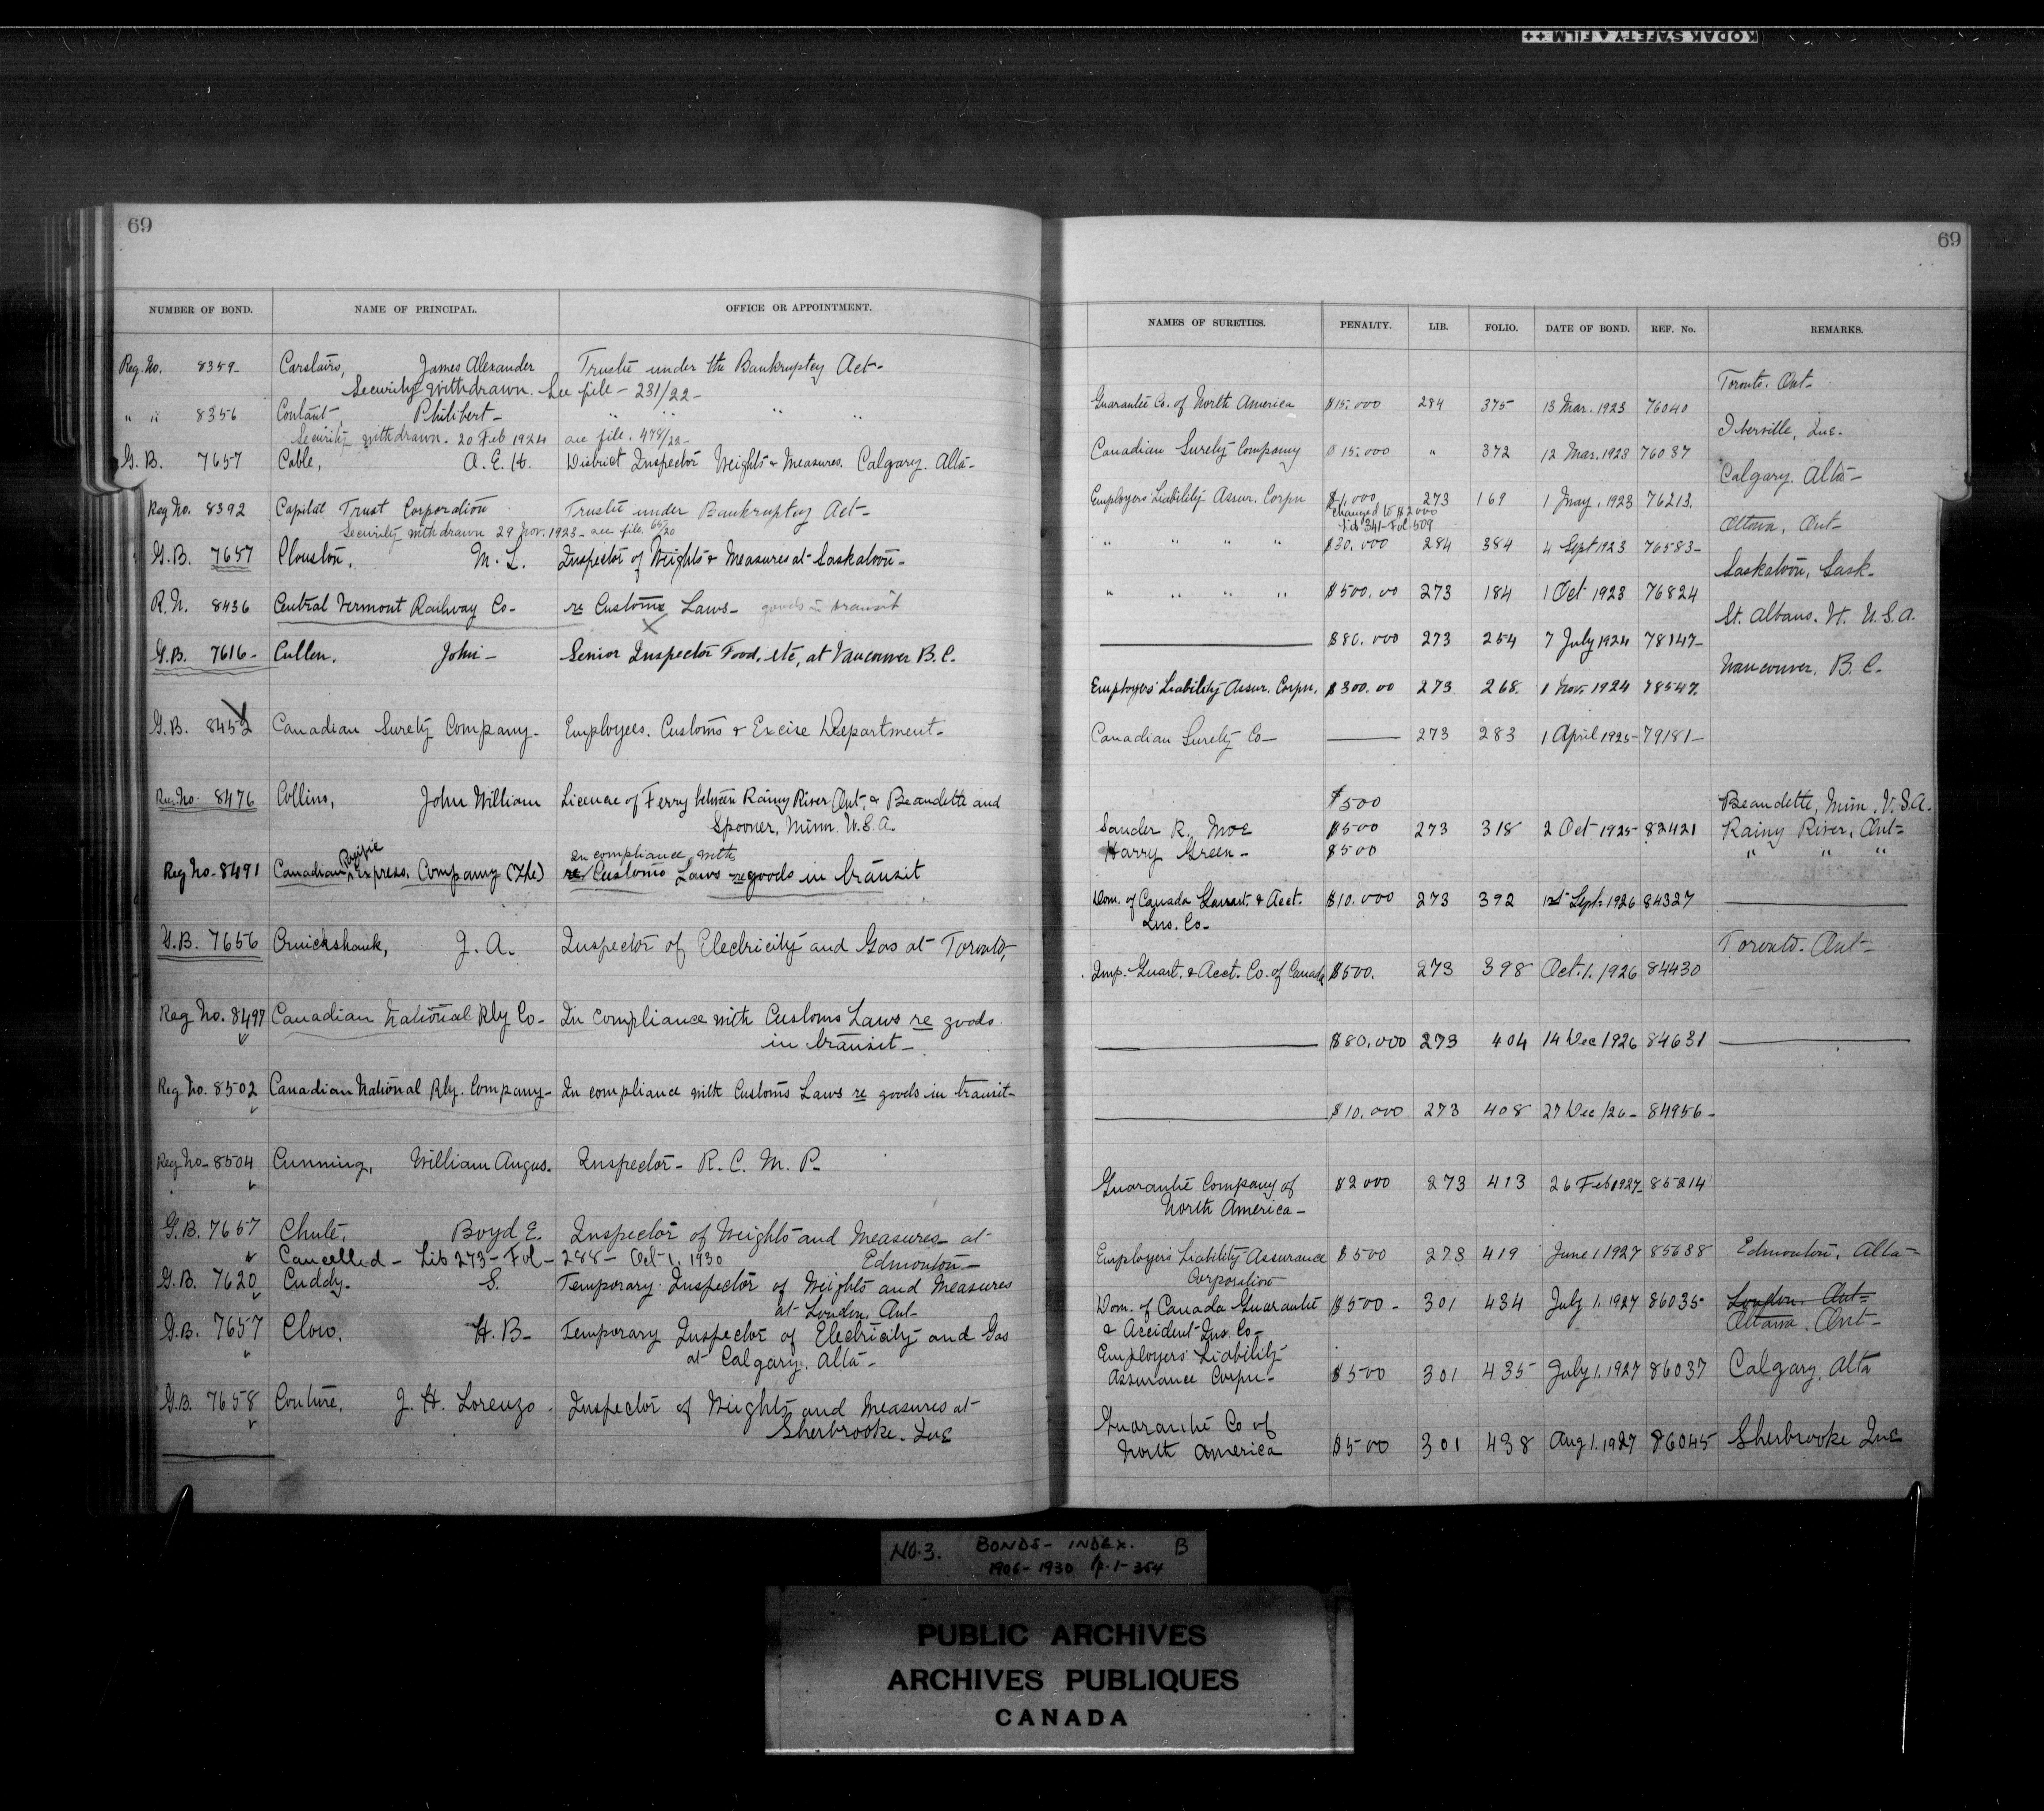 KODAK SAFETY FILM ++
69
NUMBER OF BOND. NAME OF PRINCIPAL. OFFICE OR APPOINTMENT.
Reg. No. 8359 Carstairs, James Alexander Trustee under the Bankruptcy Act
Security withdrawn. See file - 231/22
" " 8356 Coutant, Philibert " " " "
Security withdrawn. 20 Feb 1924 see file. 478/22
G.B. 7657 Cable, A. E. H. District Inspector Weights & Measures. Calgary. Alta
Reg No. 8392 Capital Trust Corporation Trustee under Bankruptcy Act
Security withdrawn 29 Nov. 1923 - see file 65/20
G.B. 7657 Clouston, M. L. Inspector of Weights & Measures at Saskatoon
R.N. 8436 Central Vermont Railway Co re Customs Laws goods in transit
G.B. 7616 Cullen, John Senior Inspector Food, etc, at Vancouver B.C.
G.B. 8452 Canadian Surety Company Employees. Customs & Excise Department
Reg. No. 8476 Collins, John William Licence of Ferry between Rainy River Ont. & Beaudette and
Spooner, Minn. U.S.A.
Pacific In compliance with
Reg No. 8491 Canadian Express. Company (The) re Customs Laws re goods in transit
G.B. 7656 Cruickshank, J. A. Inspector of Electricity and Gas at Toronto
Reg No. 8497 Canadian National Rly Co In compliance with Customs Laws re goods
in transit
Reg No. 8502 Canadian National Rly. Company In compliance with Customs Laws re goods in transit
Reg No. 8504 Cunning, William Angus. Inspector - R. C. M. P.
G.B. 7657 Chute, Boyd E. Inspector of Weights and Measures at
Cancelled - Lib 273 - Fol - 288 - Oct 1. 1930 Edmonton
G.B. 7620 Cuddy S. Temporary Inspector of Weights and Measures
at London, Ont
G.B. 7657 Clow. H. B Temporary Inspector of Electricity and Gas
at Calgary, Alta
G.B. 7658 Couture, J. H. Lorenzo Inspector of Weights and Measures at
Sherbrooke. Que
69
NAMES OF SURETIES. PENALTY. LIB. FOLIO. DATE OF BOND. REF. No. REMARKS.
Toronto. Ont
Guarantee Co. of North America $15.000 284 375 13 Mar. 1923 76040
Iberville, Que.
Canadian Surety Company $15.000 " 372 12 Mar. 1923 76037
Calgary. Alta
Employers' Liability Assur. Corpn $1,000 273 169 1 May, 1923 76213
changed to $2000
Lib 341 - Fol 509
Ottawa, Ont
" " " " $30.000 284 384 4 Sept 1923 76583
Saskatoon, Sask
" " " " $500.00 273 184 1 Oct 1923 76824
St. Albans. Vt. U.S.A.
$80.000 273 254 7 July 1924 78147
Vancouver, B. C.
Employers' Liability Assur. Corpn. $300.00 273 268 1 Nov. 1924 78547
Canadian Surety Co 273 283 1 April 1925 79181
$500 Beaudette, Minn. U.S.A.
Sander R. Moe $500 273 318 2 Oct 1925 82421 Rainy River, Ont
Harry Green $500 " " "
Dom. of Canada Guart. & Acct. $10.000 273 392 1st Sept. 1926 84327
Ins. Co
Toronto. Ont
Imp. Guart. & Acct. Co. of Canada $500. 273 398 Oct. 1. 1926 84430
$80.000 273 404 14 Dec 1926 84631
$10.000 273 408 27 Dec /26 84956
Guarantee Company of $2000 273 413 26 Feb 1927 85214
North America
Employers' Liability Assurance $500 273 419 June 1. 1927 85638 Edmonton. Alta
Corporation
Dom. of Canada Guarantee $500 301 434 July 1. 1927 86035 London. Ont
& Accident Ins. Co Ottawa. Ont
Employers' Liability
Assurance Corpn $500 301 435 July 1. 1927 86037 Calgary. Alta
Guarantee Co of
North America $500 301 438 Aug 1. 1927 86045 Sherbrooke Que
NO. 3. BONDS - INDEX. B
1906 - 1930 p. 1 - 354
PUBLIC ARCHIVES
ARCHIVES PUBLIQUES
CANADA